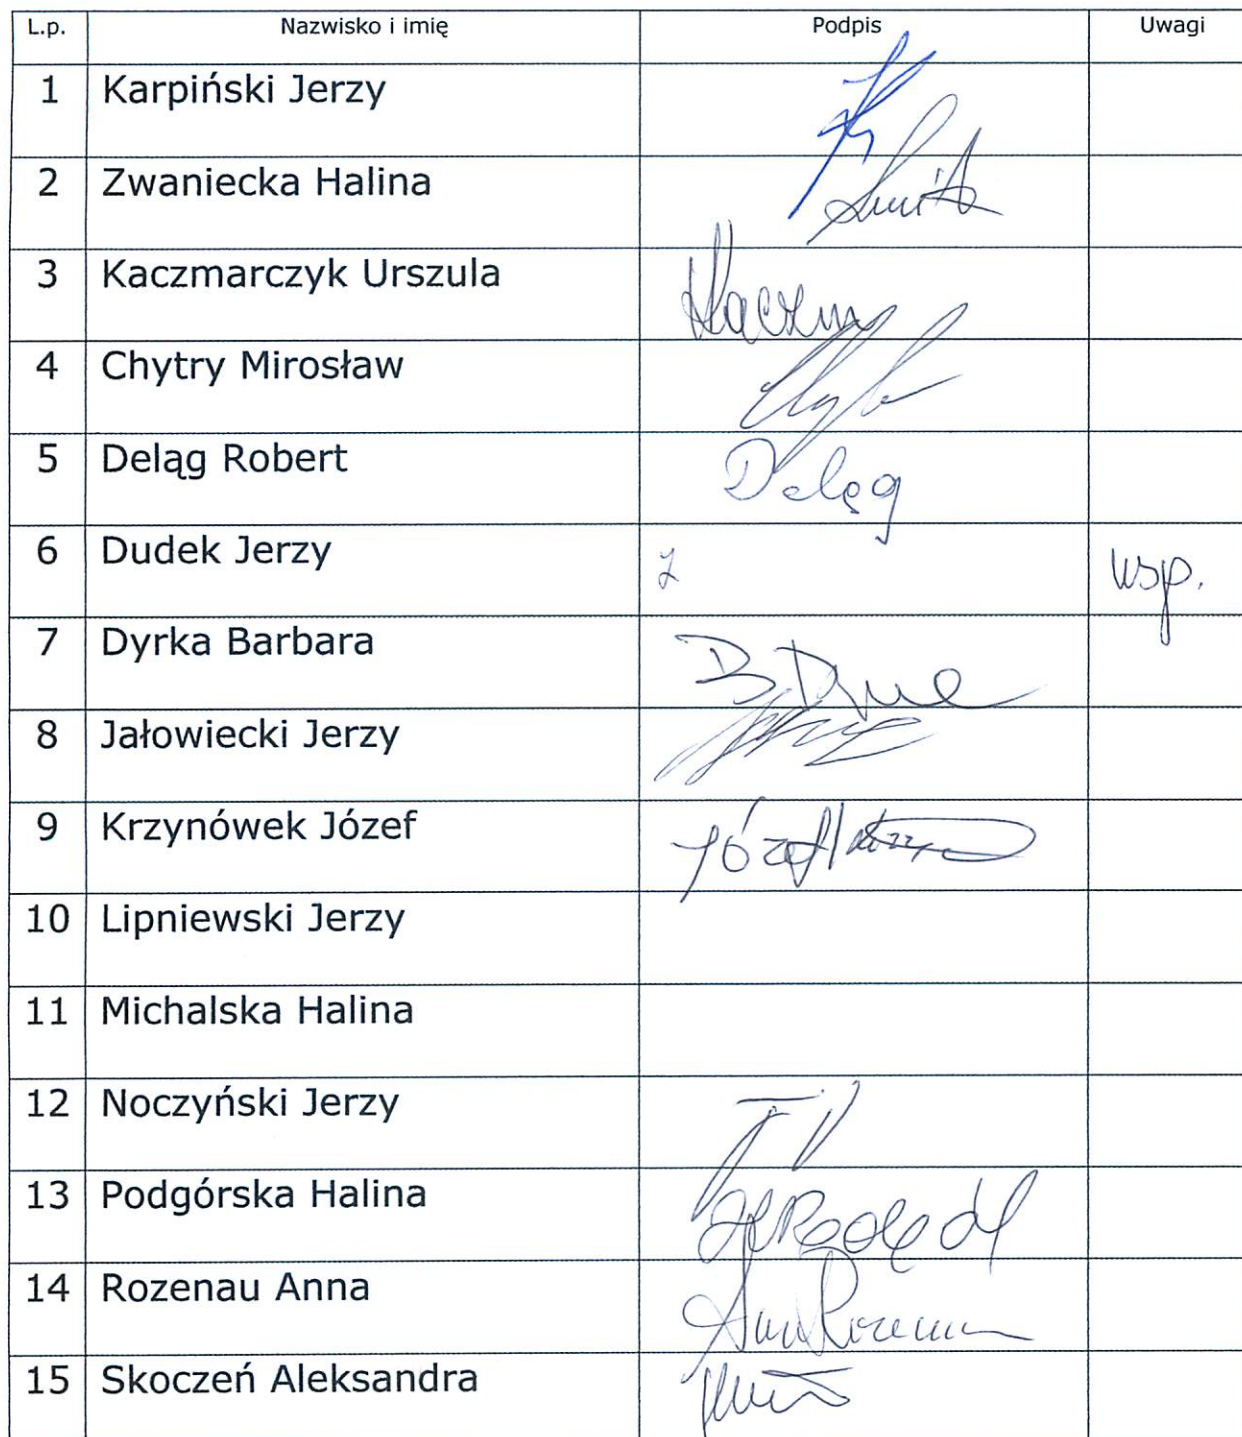 L.p. Nazwisko i imię Podpis Uwagi
1 Karpiński Jerzy
2 Zwaniecka Halina
3 Kaczmarczyk Urszula Kaczm
4 Chytry Mirosław
5 Deląg Robert Deląg
6 Dudek Jerzy usp.
7 Dyrka Barbara
8 Jałowiecki Jerzy
9 Krzynówek Józef Józef
10 Lipniewski Jerzy
11 Michalska Halina
12 Noczyński Jerzy
13 Podgórska Halina
14 Rozenau Anna
15 Skoczeń Aleksandra